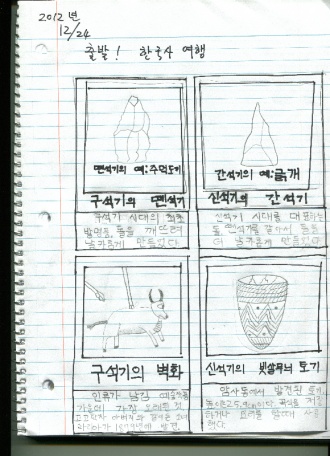 2012년
12/24
출발! 한국사 여행
뗀석기의 예:주먹도끼
간석기의 예:긁개
구석기의 뗀석기
신석기의 간석기
구석기 시대의 최초
발명품, 돌을 깨뜨려
날카롭게 만들었다.
신석기 시대를 대표하는
돌, 뗀석기를 갈아서 돌을
더 날카롭게 만들었다.
구석기의 벽화
신석기의 빗살무늬 토기
인류가 남긴 예술작품
가운데 가장 오래된 것
고고학자 아버지와
1879년에 발견.
암사동에서 발견된 토기.
곡식을 저장
하거나 요리를 할 때 사용
했다.